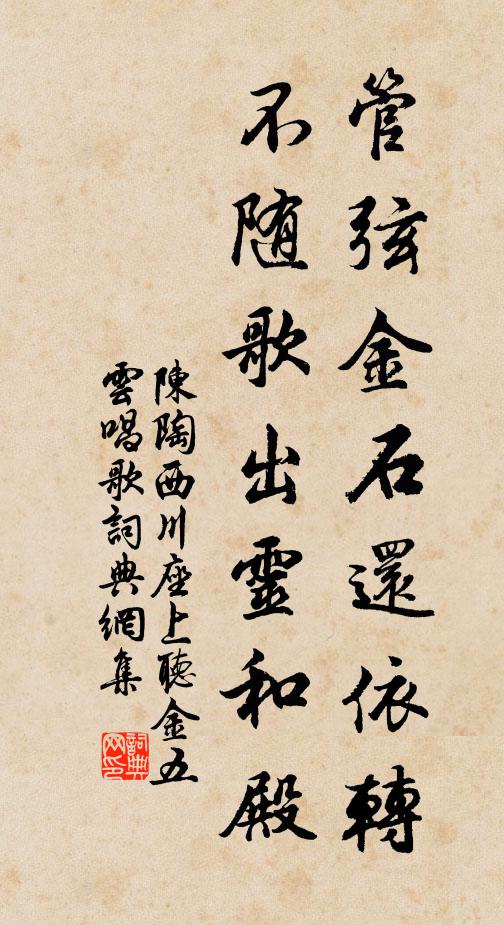 管弦金石還依轉
不随歌出靈和殿
陳陶西川座上聽金五
雲唱歌詞典網集
詞典
网印